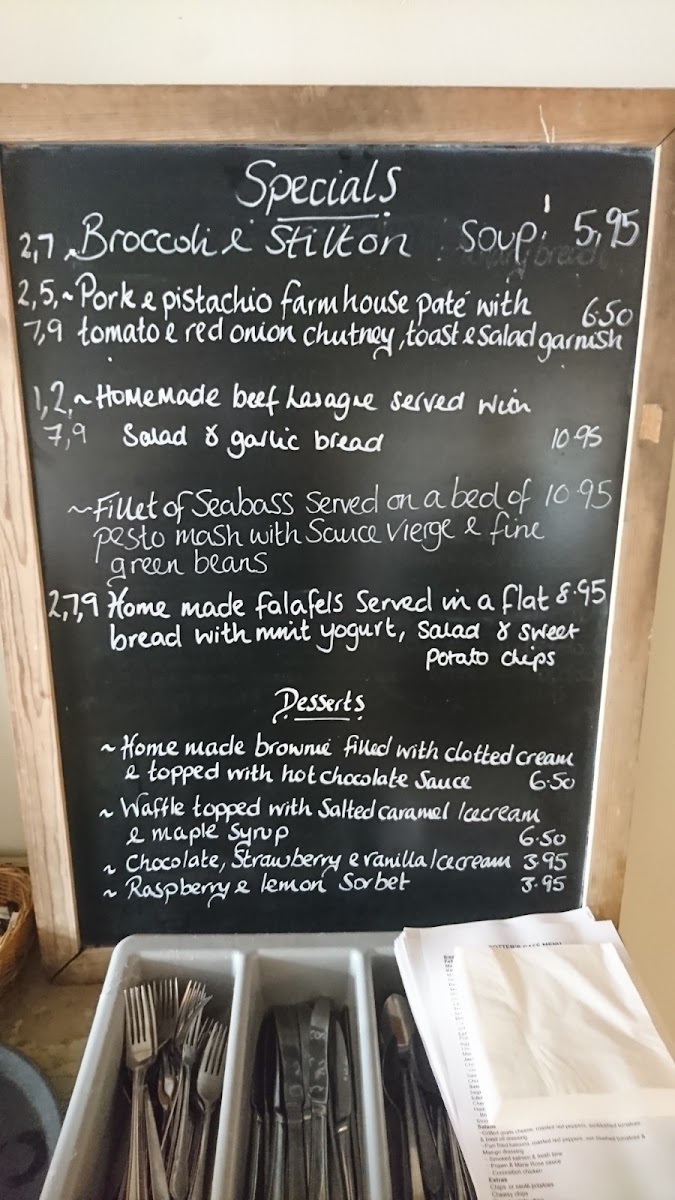 Specials
2,7 ~Broccoli & Stilton Soup 5,95
2,5,~Pork & pistachio farmhouse paté with 6.50
7,9 tomato & red onion chutney, toast & Salad garnish
1,2,~Homemade beef Lasagne served with
7,9 Salad & garlic bread 10.95
~Fillet of Seabass Served on a bed of 10.95
pesto mash with Sauce Vierge & fine
green beans
2,7,9 Home made falafels Served in a flat 8.95
bread with mint yogurt, Salad & sweet
Potato chips
Desserts
~ Home made brownie filled with clotted cream
& topped with hot chocolate Sauce 6.50
~ Waffle topped with Salted caramel Icecream
& maple Syrup 6.50
~ Chocolate, Strawberry & vanilla Icecream 3.95
~ Raspberry & lemon Sorbet 3.95
Salads
Mango dressing
- Smoked salmon &
- Prawn & Marie Rose sauce
- Coronation chicken
Extras
Chips or sauté potatoes
Cheesy chips